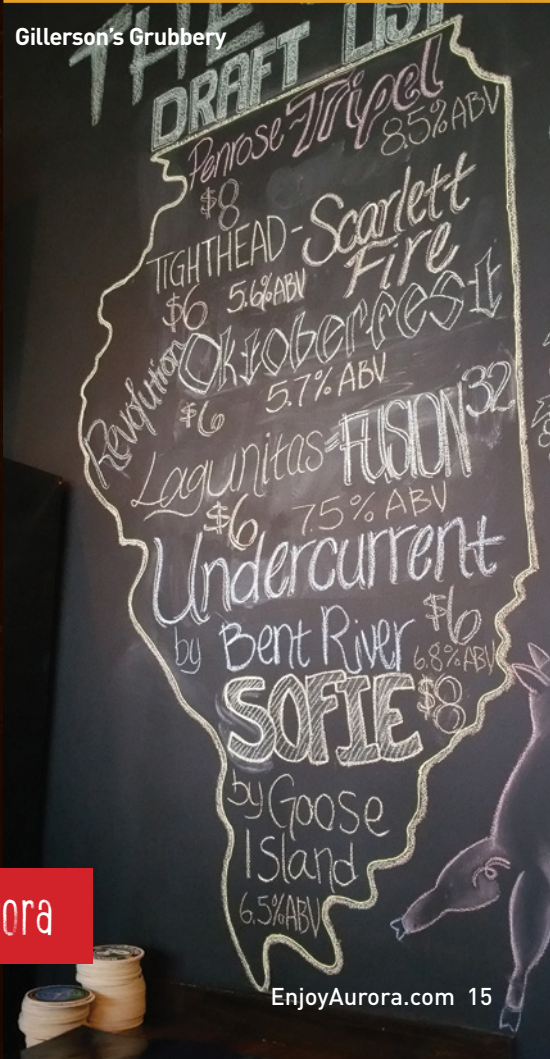 Gillerson's Grubbery
THE
DRAFT LIST
Penrose - Tripel
8.5% ABV
$8
TIGHTHEAD - Scarlett
Fire
$6 5.6% ABV
Revolution Oktoberfest
$6 5.7% ABV
Lagunitas - FUSION 32
$6 7.5% ABV
Undercurrent
by Bent River $6
6.8% ABV
SOFIE $8
by Goose
Island
6.5% ABV
ora
EnjoyAurora.com 15